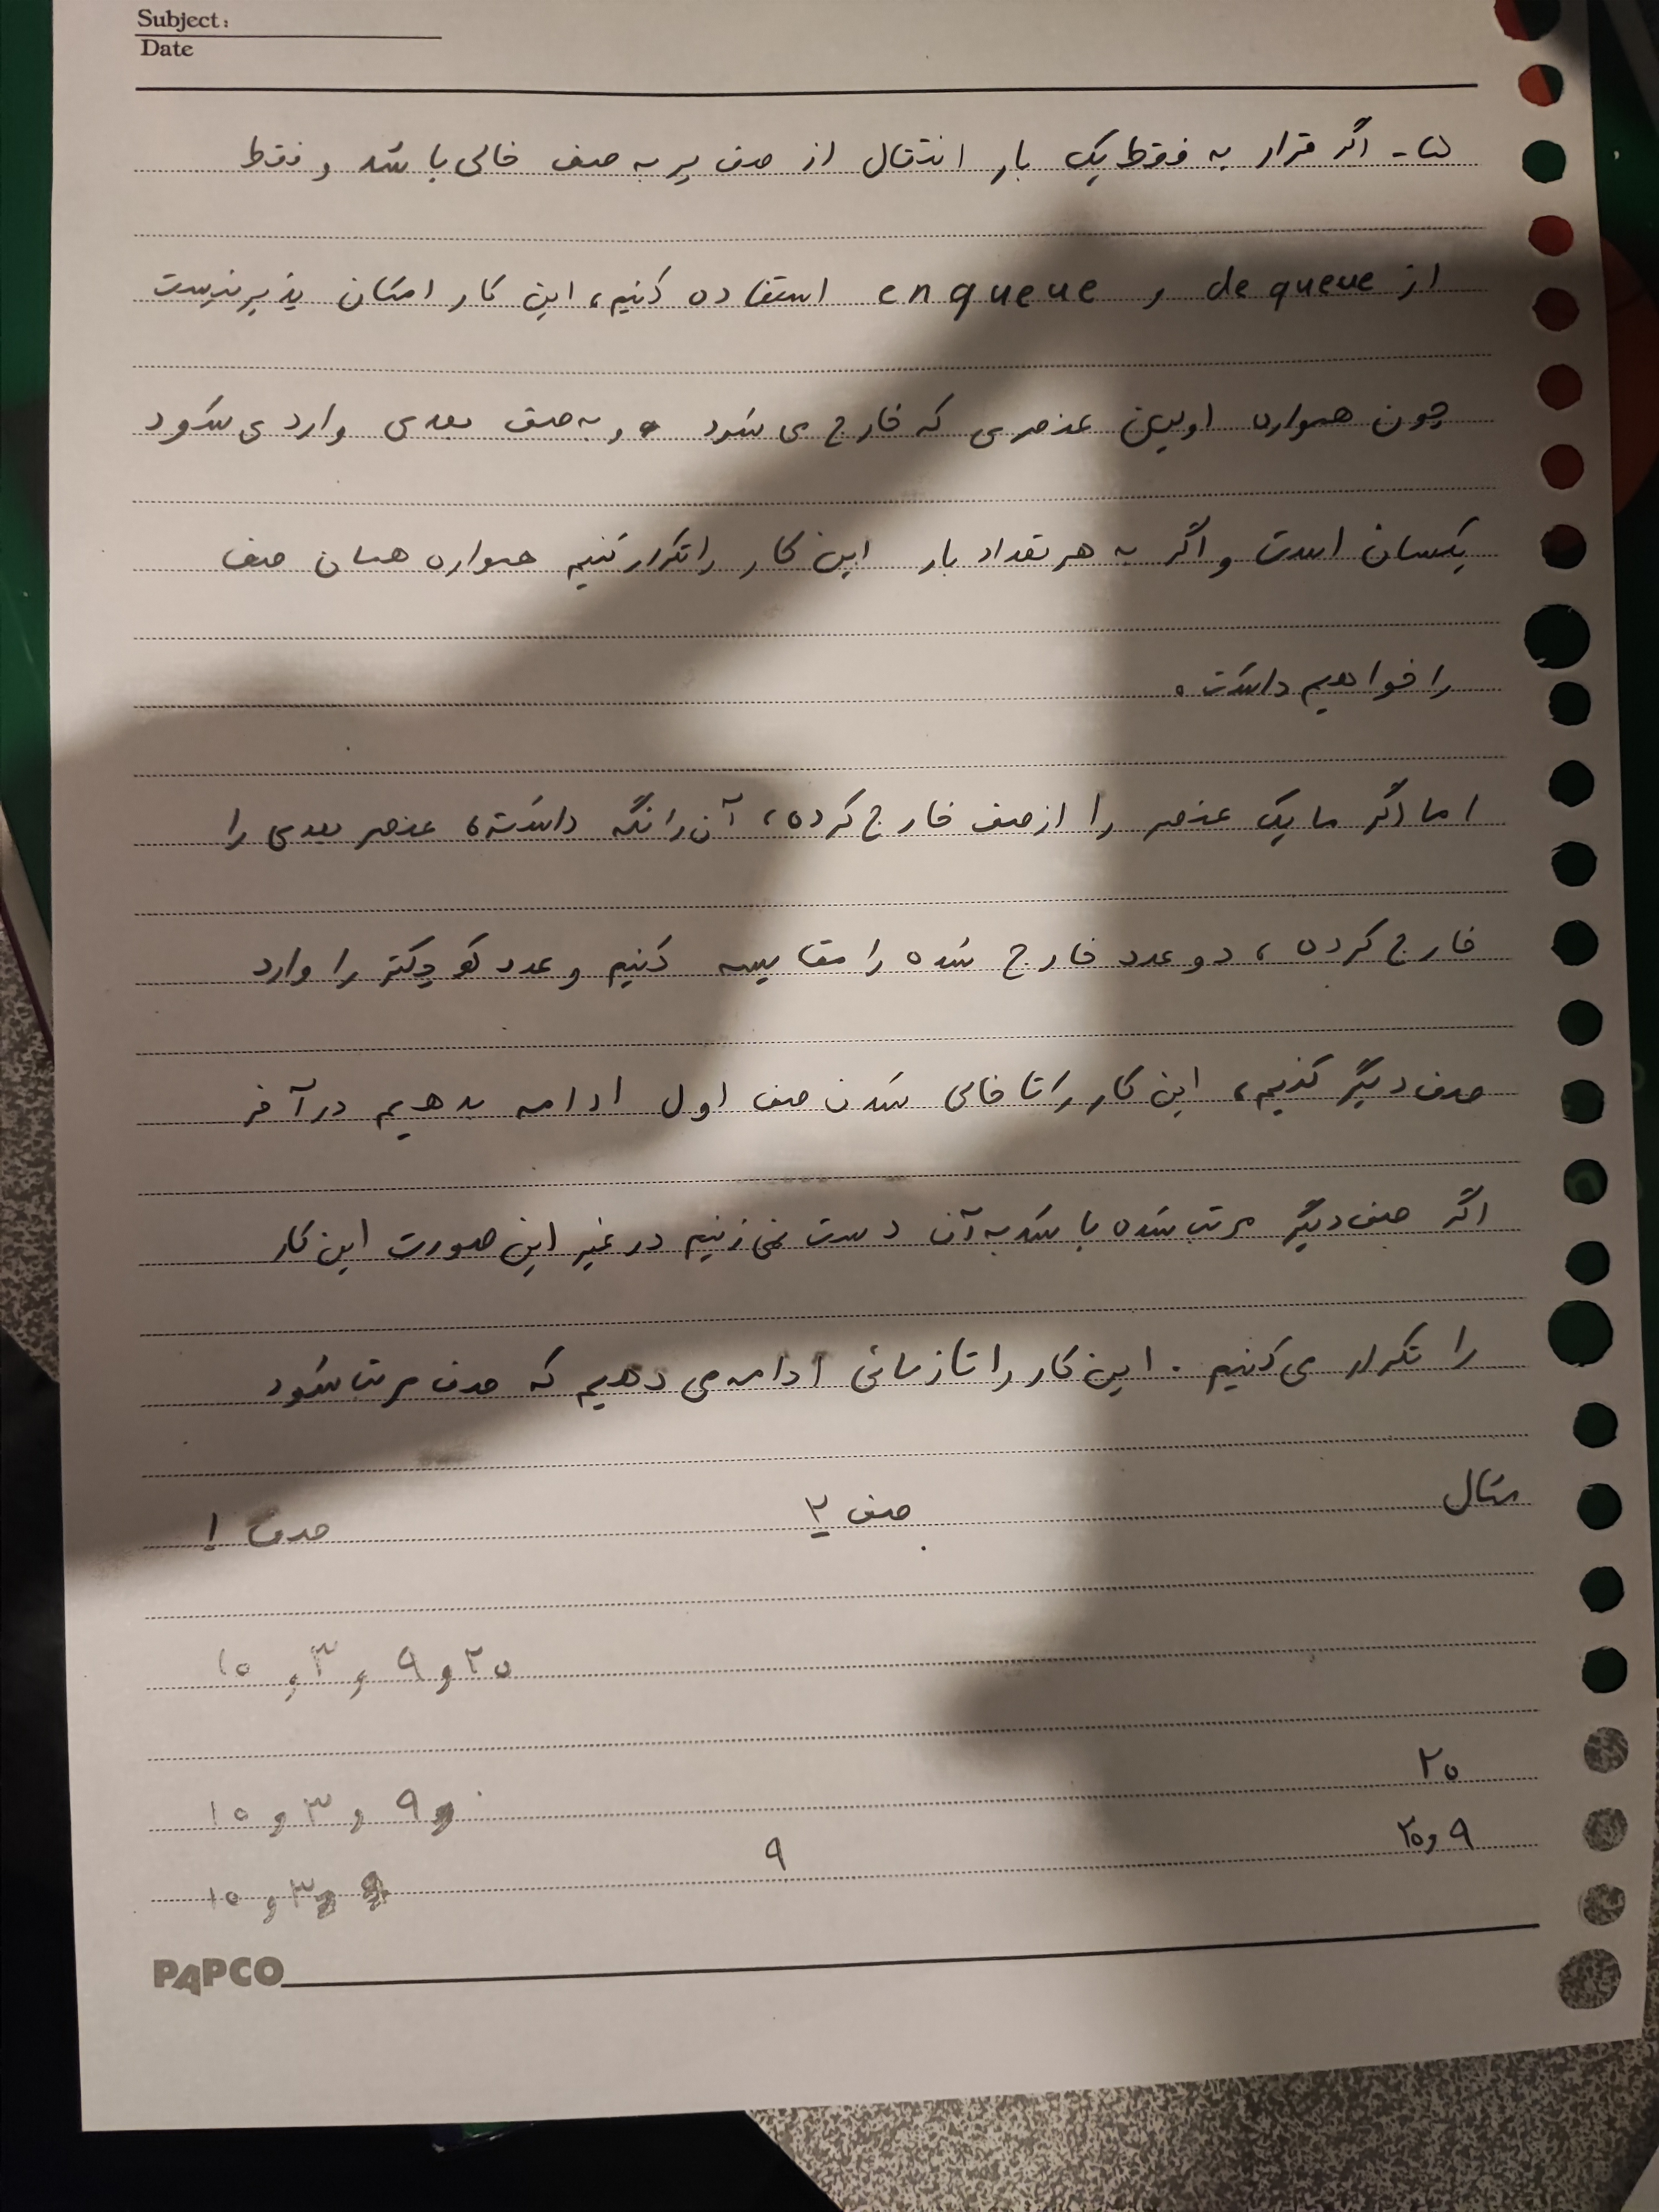 Subject:
Date
۵- اگر قرار به فقط یک بار انتقال از صف پر به صف خالی باشد و فقط
از dequeue و enqueue استفاده کنیم، این کار امکان پذیر نیست
چون همواره اولین عنصری که خارج می شود و به صف بعدی وارد می شود
یکسان است و اگر به هر تعداد بار این کار را تکرار کنیم همواره همان صف
را خواهیم داشت.
اما اگر ما یک عنصر را از صف خارج کرده، آن را نگه داشته، عنصر بعدی را
خارج کرده، دو عدد خارج شده را مقایسه کنیم و عدد کوچکتر را وارد
صف دیگر کنیم، این کار را تا خالی شدن صف اول ادامه بدهیم در آخر
اگر صف دیگر مرتب شده باشد به آن دست نمی زنیم در غیر این صورت این کار
را تکرار می کنیم. این کار را تا زمانی ادامه می دهیم که صف مرتب شود
مثال صف ۲ صف ۱
۱۰ و ۳ و ۹ و ۲۰
۲۰
۱۰ و ۳ و ۹
۲۰ و ۹ ۹
۱۰ و ۳
PAPCO